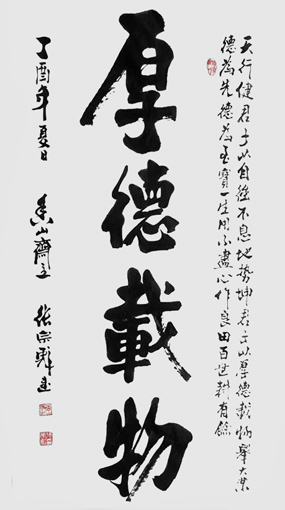 天行健君子以自強不息地勢坤君子以厚德載物舉大業
德為先德為至寶一生用不盡心作良田百世耕有餘
厚德載物
丁酉年夏日 山齋主 張宗 書